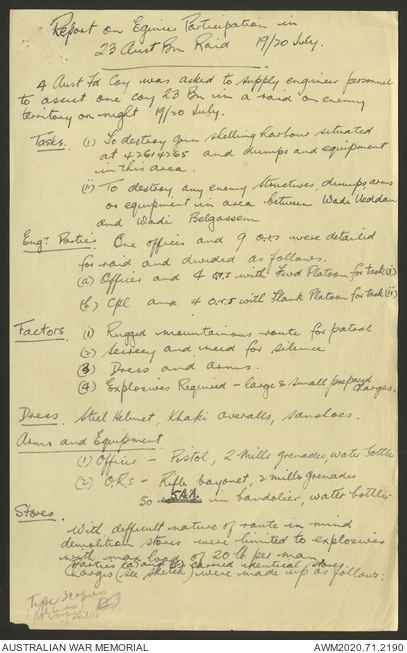 Report on Eginier Participation in
23 Aust Bn Raid 19/20 July.
4 Aust Fd Coy was asked to supply engineer personnel
to assist one coy 23 Bn in a raid on enemy
territory on night 19/20 July.
Tasks. (i) To destroy gun shelling harbour situated
at 42614265 and dumps and equipment
in this area.
(ii) To destroy any enemy structures, dumps arms
or equipment in area between Wadi Ueddan
and Wadi Belgassem
Engr Parties One officer and 9 o.r.s were detailed
for raid and divided as follows.
(a) Officer and 4 o.r.s with Fwd Platoon for task (i)
(b) Cpl and 4 o.r.s with Flank Platoon for task (ii)
Factors (1) Rugged mountainous route for patrol
(2) Secrecy and need for silence
(3) Dress and Arms.
(4) Explosives Required - large & small prepared
charges.
Dress. Steel Helmet, Khaki overalls, sanshoes.
Arms and Equipment
(1) Officer - Pistol, 2 Mills grenades, water bottle
(2) O.R.s - Rifle bayonet, 2 mills grenades
50 S.A.A. in bandolier, water bottle.
Stores.
With difficult nature of route in mind
demolition stores were limited to explosives
with max load of 20 lb per man.
Parties (a) and (b) carried identical stores.
Charges (see sketch) were made up as follows:
Type
AUSTRALIAN WAR MEMORIAL
AWM2020.71.2190